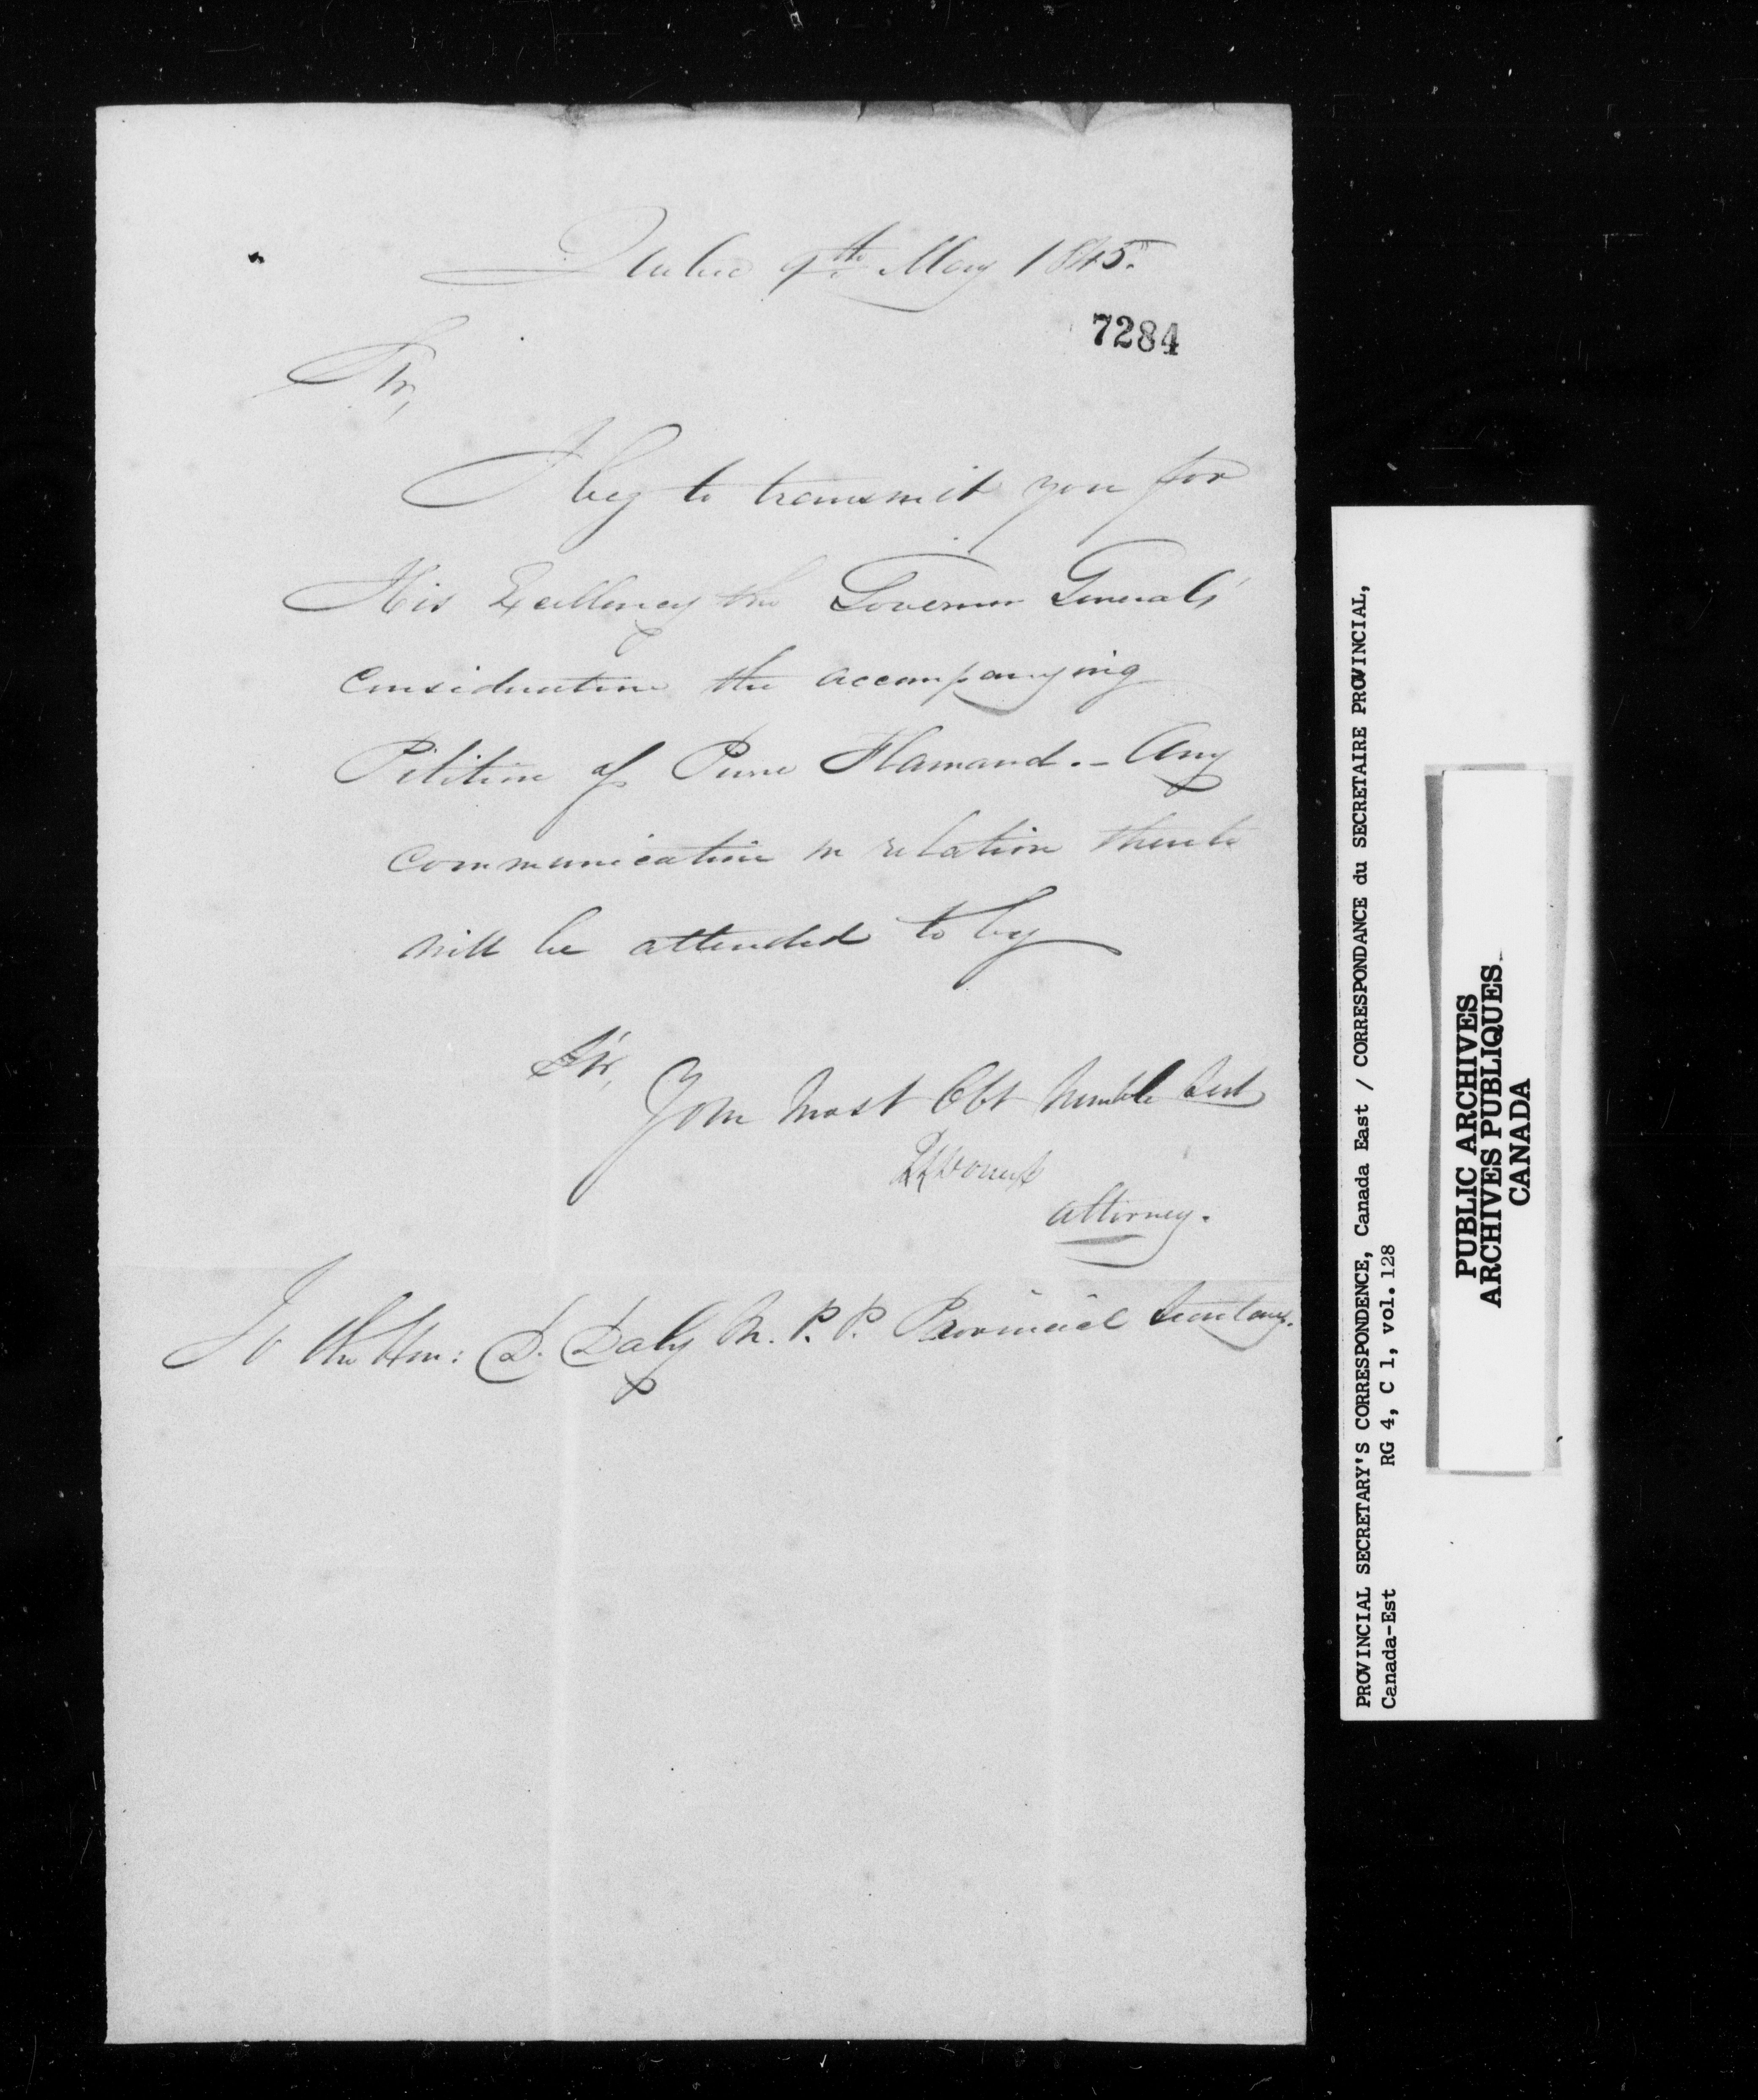 Quebec 9th May 1845.
7284
Sir,
I beg to transmit you for
His Excellency the Governor General's
consideration the accompanying
Petition of Pierre Flamand. - Any
communication in relation thereto
will be attended to by
Sir,
Your most Obt humble Sert
Attorney.
To the Hon: D. Daly M. P. P. Provincial Secretary.
PROVINCIAL SECRETARY'S CORRESPONDENCE, Canada East / CORRESPONDANCE du SECRETAIRE PROVINCIAL,
Canada-Est RG 4, C 1, vol. 128
PUBLIC ARCHIVES
ARCHIVES PUBLIQUES
CANADA